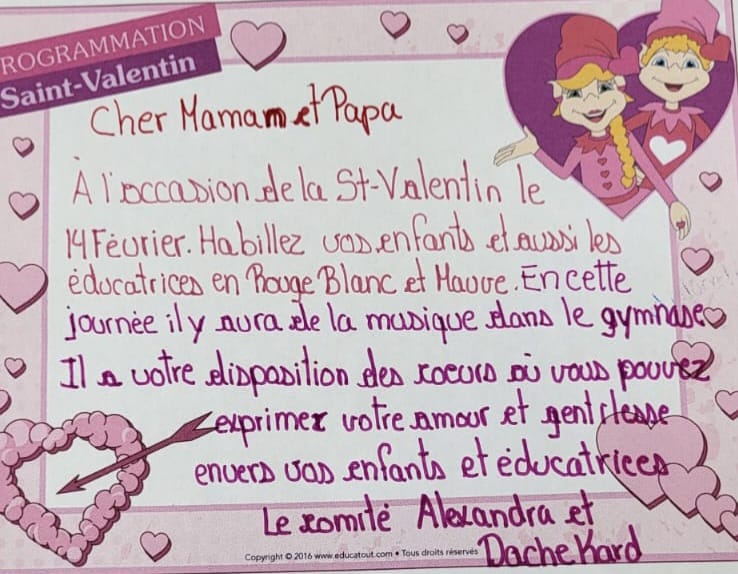 ROGRAMMATION
Saint-Valentin
Cher Mamam et Papa
À l'occasion de la St-Valentin le
14 Février. Habillez vos enfants et aussi les
éducatrices en Rouge Blanc et Mauve. En cette
journée il y aura de la musique dans le gymnase
Il a votre disposition des coeurs où vous pouvez
exprimer votre amour et gentilesse
envers vos enfants et éducatrices
Le comité Alexandra et
Dache Kard
Copyright © 2016 www.educatout.com • Tous droits réservés